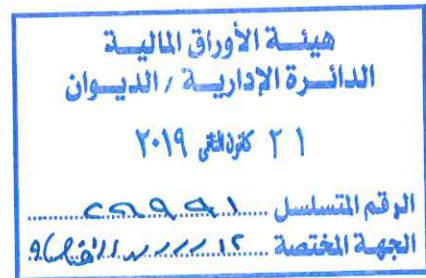 هيئــة الأوراق الماليــة
الدائــرة الإداريــة / الديــوان
٢١ كانون الثاني ٢٠١٩
الرقم المتسلسل
الجهة المختصة